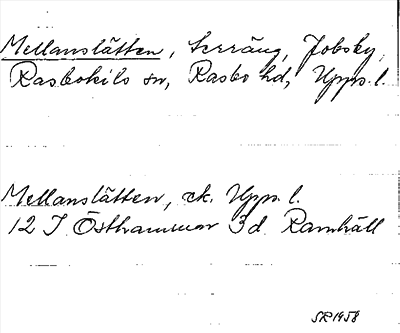 Mellanslätten, terräng, Jobsky,
Rasbokils sn, Rasbo hd, Upps. l.
Mellanslätten, ek. Upps. l.
12 I Östhammar 3d Ramhäll
SR 1958